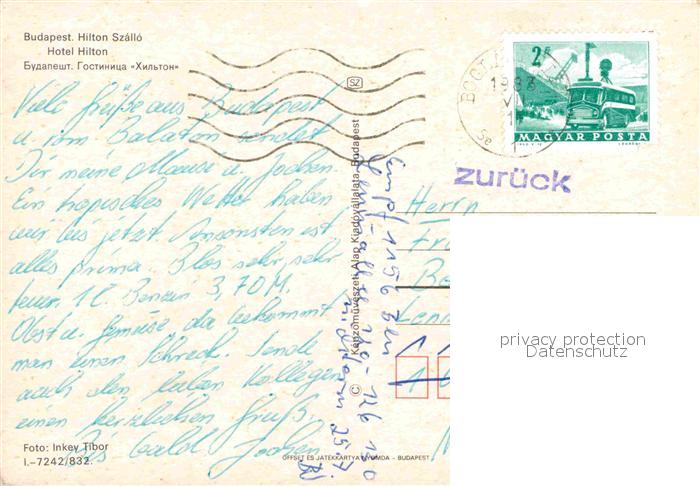 Budapest. Hilton Szálló
Hotel Hilton
Будапешт. Гостиница «Хильтон»
Viele Grüße aus Budapest
u. vom Balaton sendet
Dir meine Mause u. Jochen.
Ein tropisches Wetter haben
wir bis jetzt. Ansonsten ist
alles prima. Blos sehr, sehr
teuer. 1 l Benzin 3,70 M.
Obst u. Gemüse da bekommt
man einen Schreck. Sende
auch den lieben Kollegen
einen herzlichen Gruß.
Bis bald Jochen
Foto: Inkey Tibor
I.–7242/832.
SZ
© Képzőművészeti Alap Kiadóvállalata, Budapest
OFFSET ÉS JÁTÉKKARTYA NYOMDA – BUDAPEST
Empf 1156 Bln
25.7.
2 Ft
MAGYAR POSTA
zurück
Herrn
Fr
privacy protection
Datenschutz